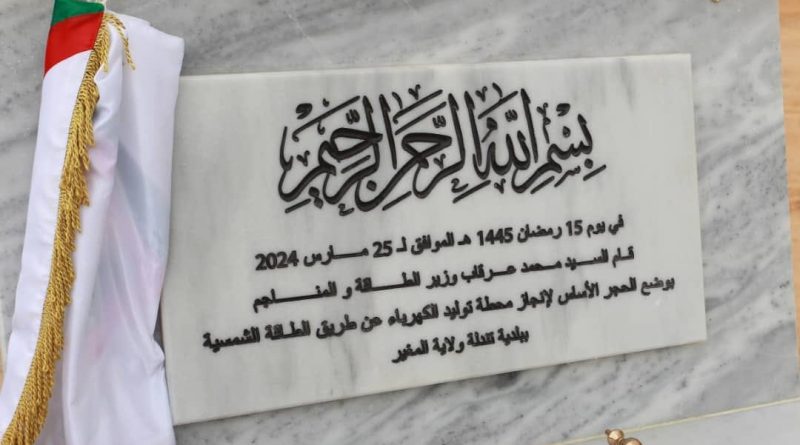 بِسْمِ اللَّهِ الرَّحْمَنِ الرَّحِيمِ
في يوم 15 رمضان 1445 هـ الموافق لـ 25 مـارس 2024
قـام السيد محمد عـرقاب وزير الطـاقة و المنـاجم
بوضع الحجر الأساس لإنجاز محطة توليد الكهرباء عن طريق الطاقة الشمسية
ببلدية تندلة ولاية المغير